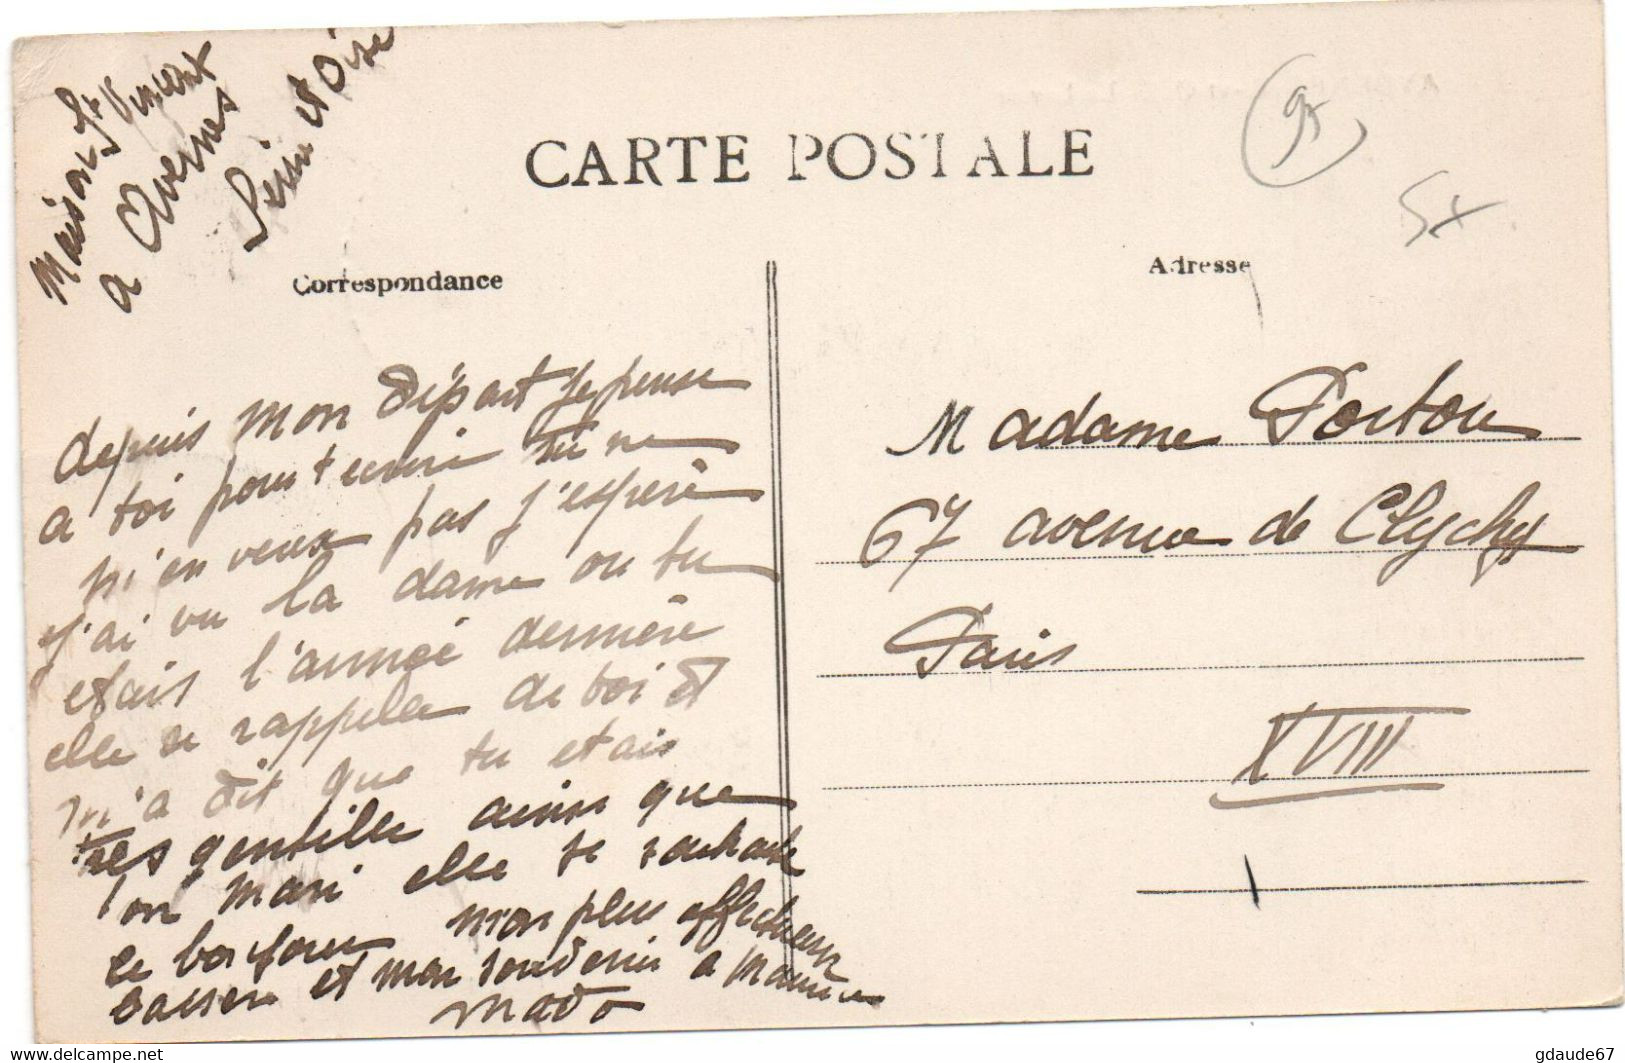 Maison St Vincent
a Avernes
Seine et Oise
CARTE POSTALE
95
5x
Correspondance
Adresse
depuis mon départ je pense
a toi pour t ecrire tu ne
m'en veux pas j'esperè
j'ai vu la dame ou tu
etais l'année dernière
elle se rappelle de toi et
m'a dit que tu etais
tres gentille ainsi que
ton mari elle te souhaite
le bonjour mon plus affectueux
baiser et mon souvenir a Maurice
Mado
Madame Portou
67 avenue de Clychy
Paris
XVIII
www.delcampe.net
gdaude67